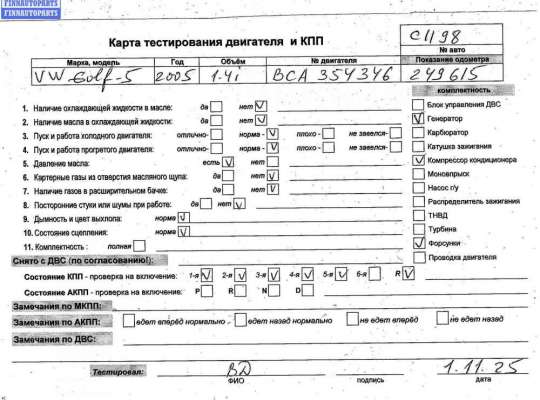 FINNAUTOPARTS
FINNAUTOPARTS
Карта тестирования двигателя и КПП
C1198
№ авто
Марка, модель Год Объём № двигателя Показание одометра
VW Golf-5 2005 1.4i BCA 354346 249615
1. Наличие охлаждающей жидкости в масле: да нет V
2. Наличие масла в охлаждающей жидкости: да нет V
3. Пуск и работа холодного двигателя: отлично- норма - V плохо - не завелся-
4. Пуск и работа прогретого двигателя: отлично- норма - V плохо - не завелся-
5. Давление масла: есть V нет
6. Картерные газы из отверстия масляного щупа: да нет V
7. Наличие газов в расширительном бачке: да нет V
8. Посторонние стуки или шумы при работе: да нет V
9. Дымность и цвет выхлопа: норма V
10. Состояние сцепления: норма V
11. Комплектность : полная
комплектность
Блок управления ДВС
V Генератор
Карбюратор
Катушка зажигания
V Компрессор кондиционера
Моновпрыск
Насос г/у
Распределитель зажигания
ТНВД
Турбина
V Форсунки
Проводка двигателя
Снято с ДВС (по согласованию!):
Состояние КПП - проверка на включение: 1-я V 2-я V 3-я V 4-я V 5-я V 6-я R V
Состояние АКПП - проверка на включение: P R N D
Замечания по МКПП:
Замечания по АКПП: едет вперёд нормально едет назад нормально не едет вперёд не едет назад
Замечания по ДВС:
Тестировал: ВД 1.11.25
ФИО подпись дата